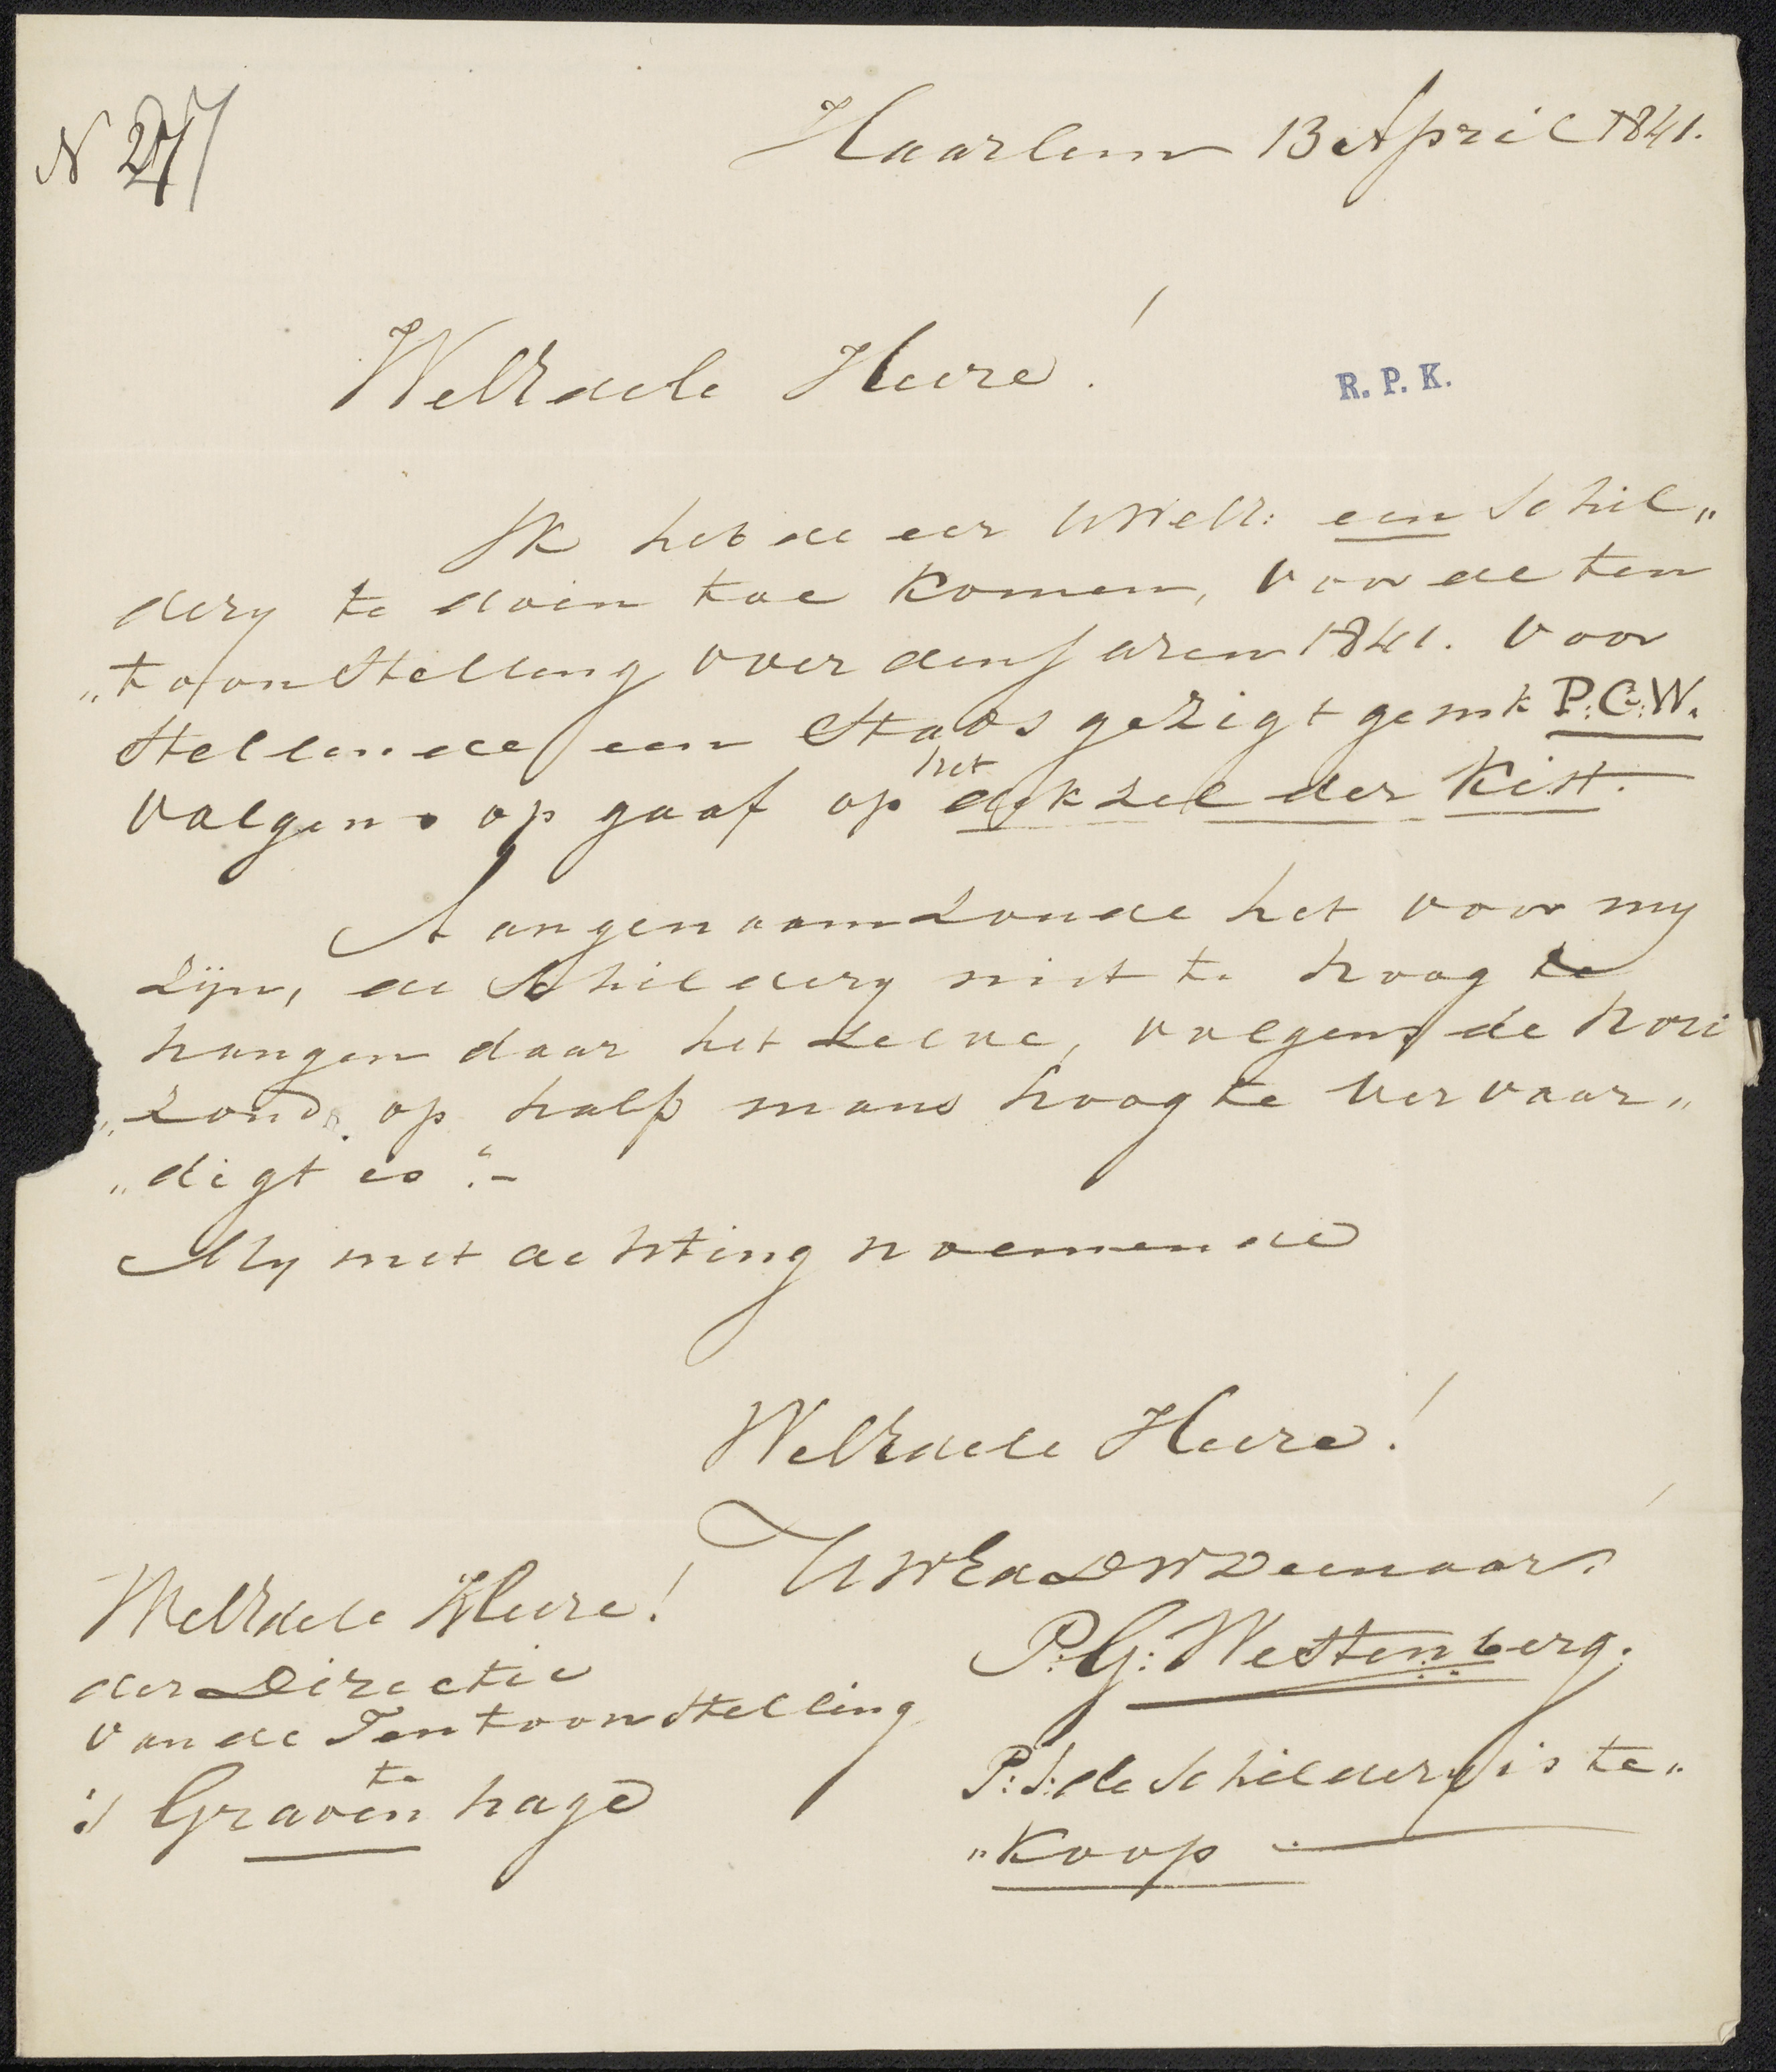 N 27
Haarlem 13 April 1841.
WelEdele Heere!
R. P. K.
Ik heb de eer UWelE: een Schil„
dery te doen toe komen, voor de ten
„toonstelling over den Jaren 1841. voor
stellende een Stads gezigt gemk P:C:W.
volgens op gaaf op het dekzel der Kist.
Aangenaam zoude het voor my
zijn, de Schildery niet te hoog te
hangen daar het zelve, volgens de hori
„zond. op half mans hoogte vervaar„
„digt is“.-
My met achting noemende
WelEdele Heere!
UWEd DW Deenaar.
P:G: Westenberg.
WelEdele Heere!
der Directie
van de Tentoonstelling
te
's Gravenhage
P:S: de Schildery is te„
„Koop